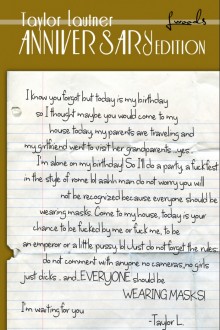 Taylor Lautner
fwoods
ANNIVERSARY EDITION
I know you forgot but today is my birthday
so I thought maybe you would come to my
house today, my parents are traveling and
my girlfriend went to visit her grandparents ..yes..
I'm alone on my birthday! So I'll do a party, a fuckfest
in the style of rome lol aahh man do not worry you will
not be recognized because everyone should be
wearing masks. Come to my house, today is your
chance to be fucked by me or fuck me, to be
an emperor or a little pussy, lol Just do not forget the rules:
do not comment with anyone, no cameras, no girls
just dicks .. and ..EVERYONE should be
WEARING MASKS!
I'm waiting for you
-Taylor L.